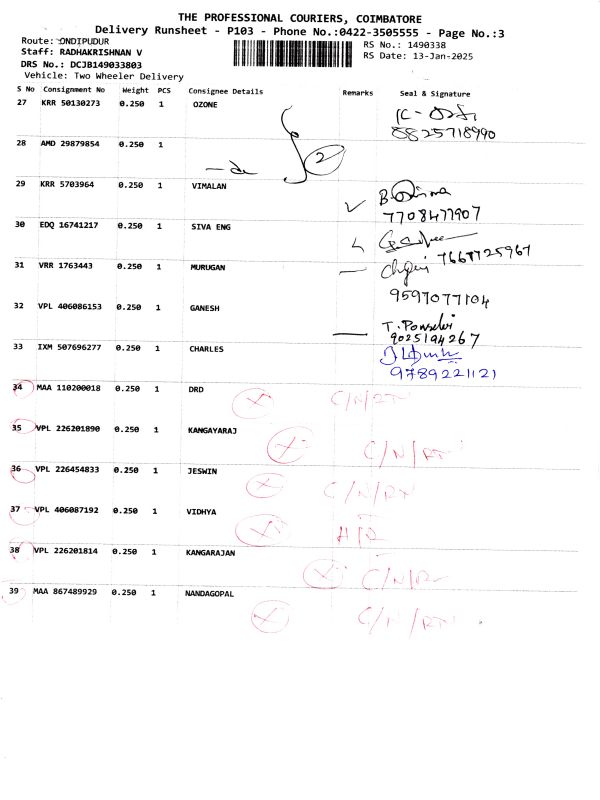 THE PROFESSIONAL COURIERS, COIMBATORE
Delivery Runsheet - P103 - Phone No.:0422-3505555 - Page No.:3
Route: ONDIPUDUR
RS No.: 1490338
Staff: RADHAKRISHNAN V
RS Date: 13-Jan-2025
DRS No.: DCJB149033803
Vehicle: Two Wheeler Delivery
S No Consignment No Weight PCS Consignee Details Remarks Seal & Signature
27 KRR 50130273 0.250 1 OZONE
8825718990
28 AMD 29879854 0.250 1
2
29 KRR 5703964 0.250 1 VIMALAN
7708477907
30 EDQ 16741217 0.250 1 SIVA ENG
7667725967
31 VRR 1763443 0.250 1 MURUGAN
9597077104
32 VPL 406086153 0.250 1 GANESH
T. Ponselvi
9025194267
33 IXM 507696277 0.250 1 CHARLES
9789221121
34 MAA 110200018 0.250 1 DRD X C/N/RN
35 VPL 226201890 0.250 1 KANGAYARAJ X C/N/RN
36 VPL 226454833 0.250 1 JESWIN X C/N/RN
37 VPL 406087192 0.250 1 VIDHYA X H/R
38 VPL 226201814 0.250 1 KANGARAJAN X C/N/R
39 MAA 867489929 0.250 1 NANDAGOPAL X C/N/RN